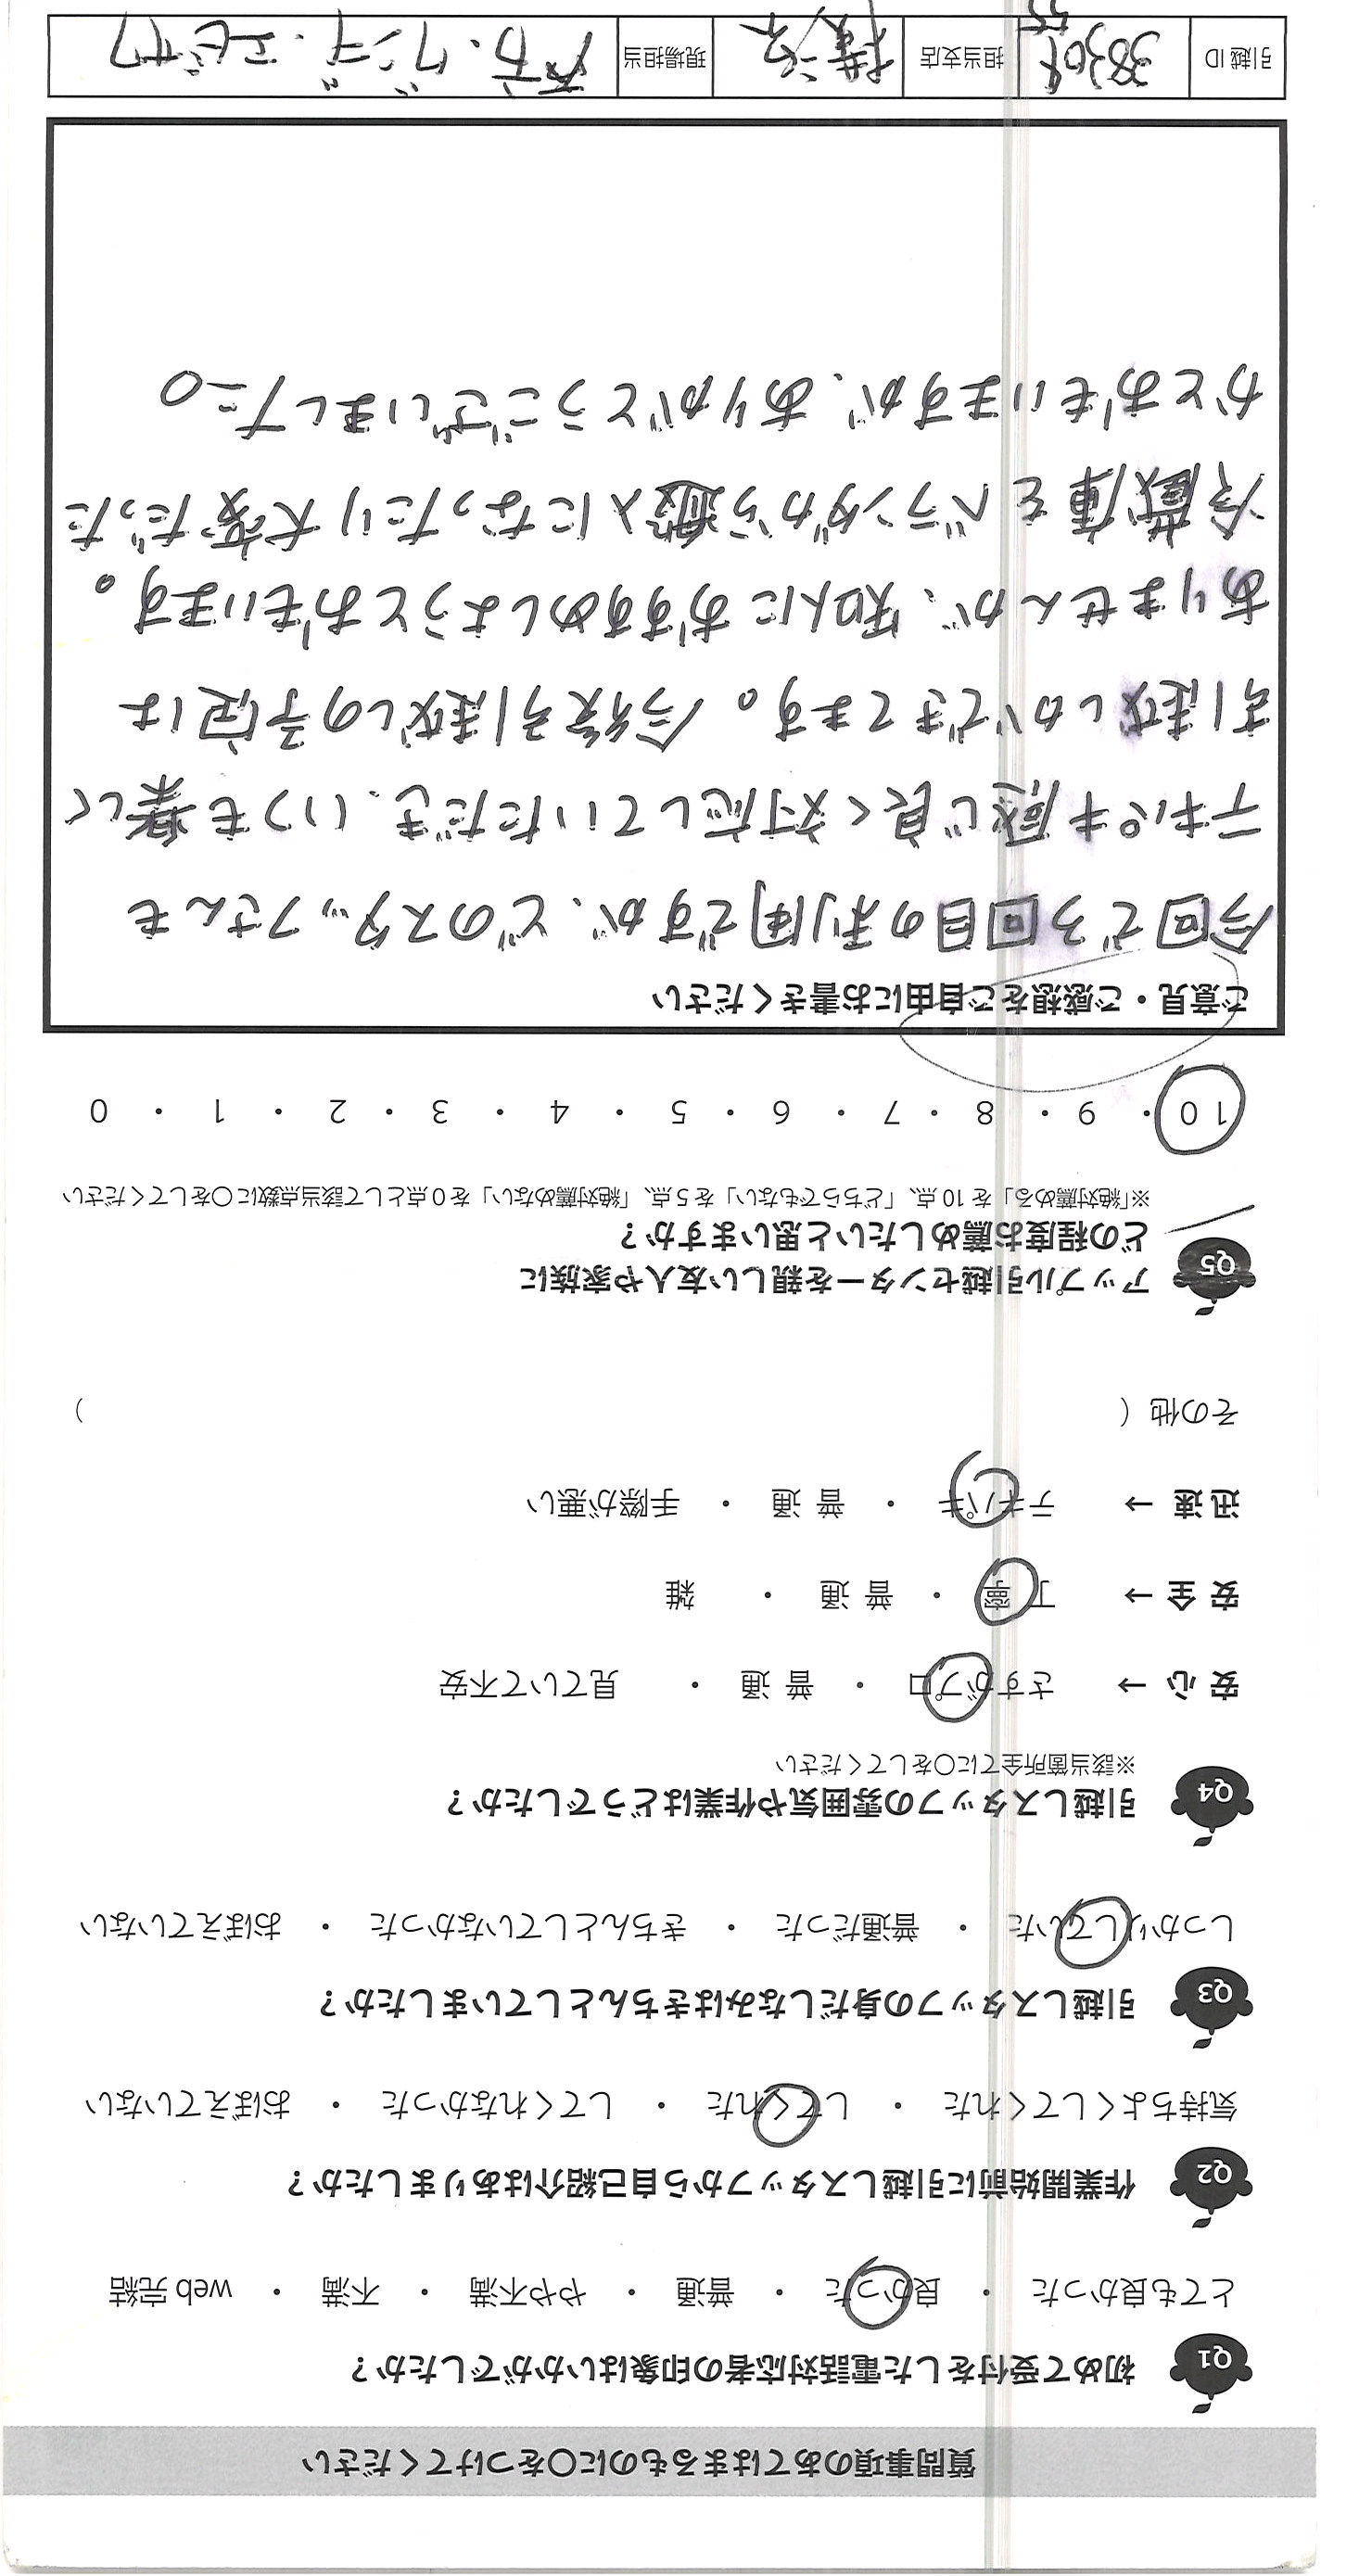 質問事項のあてはまるものに〇をつけてください
Q1 初めて受付をした電話対応者の印象はいかがでしたか？
とても良かった ・ 良かった ・ 普通 ・ やや不満 ・ 不満 ・ web 完結
Q2 作業開始前に引越しスタッフから自己紹介はありましたか？
気持ちよくしてくれた ・ してくれた ・ してくれなかった ・ おぼえていない
Q3 引越しスタッフの身だしなみはきちんとしていましたか？
しっかりしていた ・ 普通だった ・ きちんとしていなかった ・ おぼえていない
Q4 引越しスタッフの雰囲気や作業はどうでしたか？
※該当箇所全てに〇をしてください
安 心 → さすがプロ ・ 普 通 ・ 見ていて不安
安 全 → 丁 寧 ・ 普 通 ・ 雑
迅 速 → テキパキ ・ 普 通 ・ 手際が悪い
その他（ ）
Q5 アップル引越センターを親しい友人や家族に
どの程度お薦めしたいと思いますか？
※「絶対薦める」を 10 点、「どちらでもない」を 5 点、「絶対薦めない」を 0 点として該当点数に〇をしてください
10 ・ 9 ・ 8 ・ 7 ・ 6 ・ 5 ・ 4 ・ 3 ・ 2 ・ 1 ・ 0
ご意見・ご感想をご自由にお書きください
今回で3回目の利用ですが、どのスタッフさんも
テキパキ感じ良く対応していただき、いつも楽しく
引越しができてます。今後引越しの予定は
ありませんが、知人におすすめしようとおもいます。
冷蔵庫をベランダから搬入になったり大変だった
かとおもいますが、ありがとうございました。
引越 ID 担当支店 横浜 現場担当